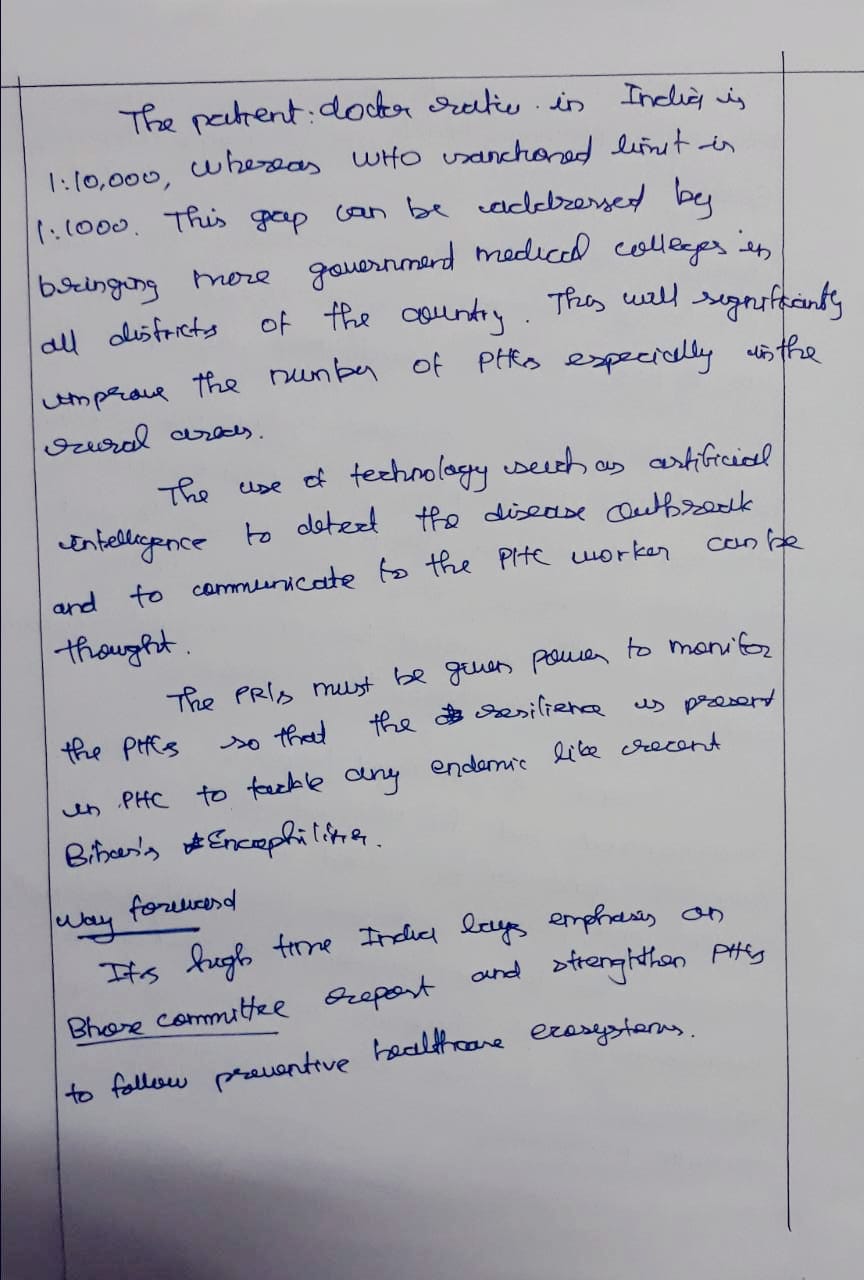 The patient:doctor ratio in India is
1:10,000, whereas WHO sanctioned limit is
1:1000. This gap can be addressed by
bringing more government medical colleges in
all districts of the country. This will significantly
improve the number of PHCs especially in the
rural areas.
The use of technology such as artificial
intelligence to detect the disease outbreak
and to communicate to the PHC worker can be
thought.
The PRIs must be given power to monitor
the PHCs so that the resilience is present
in PHC to tackle any endemic like recent
Bihar's Encephilitis.
Way forward
Its high time India lays emphasis on
Bhore committee report and strenghthen PHCs
to follow preventive healthcare ecosystems.